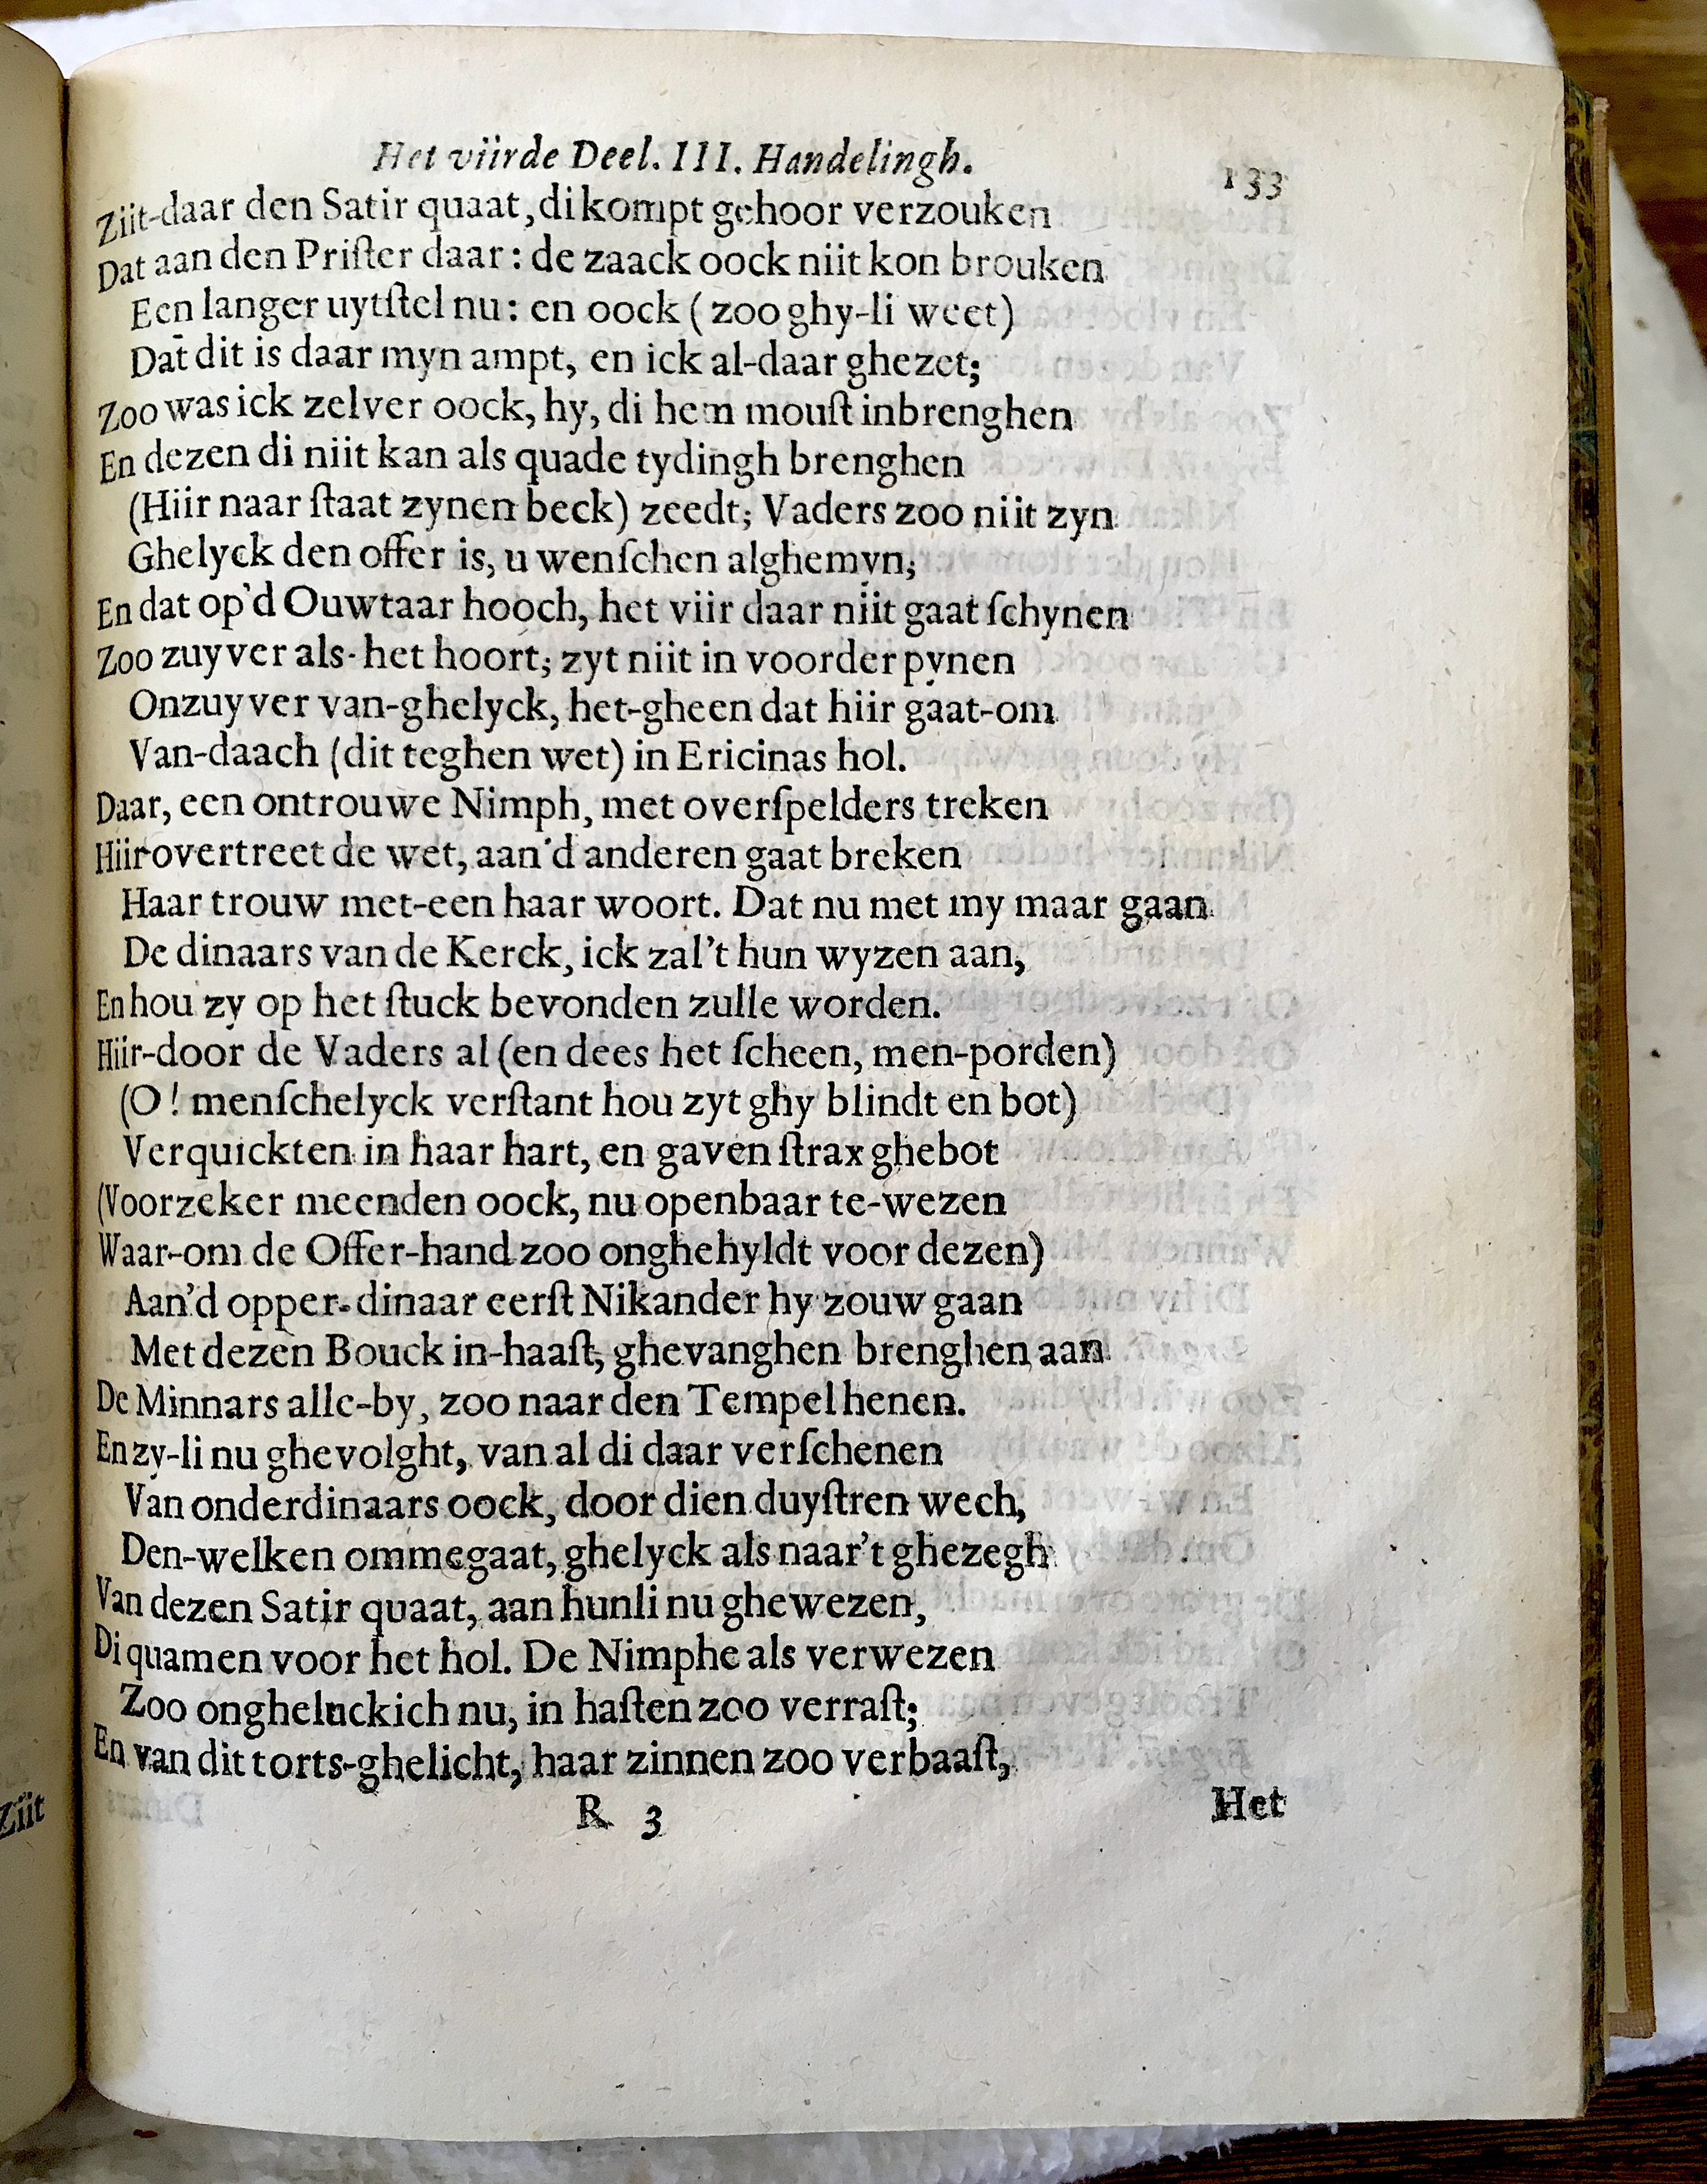 Het viirde Deel. III. Handelingh. 133
Ziit-daar den Satir quaat, di kompt gehoor verzouken
Dat aan den Priſter daar: de zaack oock niit kon brouken
Een langer uytſtel nu: en oock (zoo ghy-li weet)
Dat dit is daar myn ampt, en ick al-daar ghezet;
Zoo was ick zelver oock, hy, di hem mouſt inbrenghen
En dezen di niit kan als quade tydingh brenghen
(Hiir naar ſtaat zynen beck) zeedt; Vaders zoo niit zyn
Ghelyck den offer is, u wenſchen alghemyn;
En dat op'd Ouwtaar hooch, het viir daar niit gaat ſchynen
Zoo zuyver als-het hoort; zyt niit in voorder pynen
Onzuyver van-ghelyck, het-gheen dat hiir gaat-om
Van-daach (dit teghen wet) in Ericinas hol.
Daar, een ontrouwe Nimph, met overſpelders treken
Hiir overtreet de wet, aan'd anderen gaat breken
Haar trouw met-een haar woort. Dat nu met my maar gaan
De dinaars van de Kerck, ick zal't hun wyzen aan,
En hou zy op het ſtuck bevonden zulle worden.
Hiir-door de Vaders al (en dees het ſcheen, men-porden)
(O! menſchelyck verſtant hou zyt ghy blindt en bot)
Verquickten in haar hart, en gaven ſtrax ghebot
(Voorzeker meenden oock, nu openbaar te-wezen
Waar-om de Offer-hand zoo onghehyldt voor dezen)
Aan'd opper-dinaar eerſt Nikander hy zouw gaan
Met dezen Bouck in-haaſt, ghevanghen brenghen aan
De Minnars alle-by, zoo naar den Tempel henen.
En zy-li nu ghevolght, van al di daar verſchenen
Van onderdinaars oock, door dien duyſtren wech,
Den-welken ommegaat, ghelyck als naar't ghezegh
Van dezen Satir quaat, aan hunli nu ghewezen,
Di quamen voor het hol. De Nimphe als verwezen
Zoo ongheluckich nu, in haſten zoo verraſt;
En van dit torts-ghelicht, haar zinnen zoo verbaaſt,
R 3 Het
Ziit